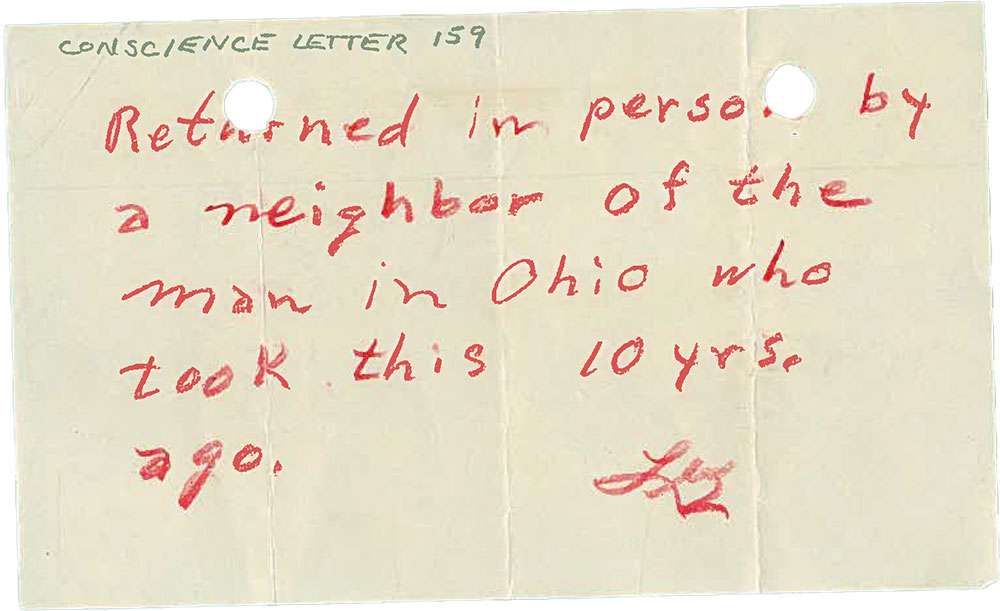 CONSCIENCE LETTER 159
Returned in person by
a neighbor of the
man in Ohio who
took this 10 yrs.
ago.